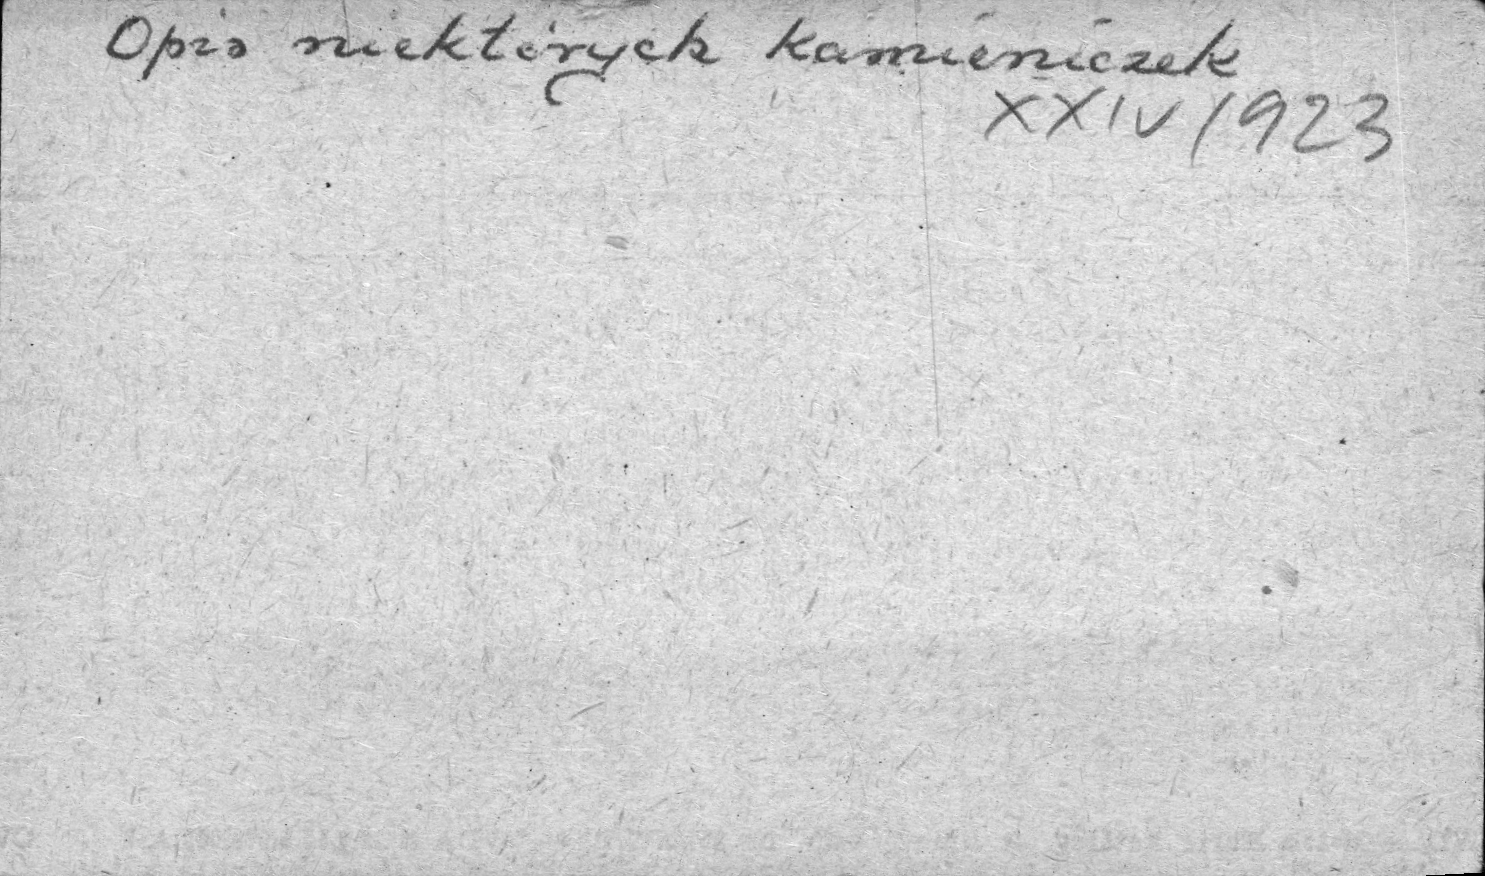 Opis niektórych kamieniczek
XXIV/923